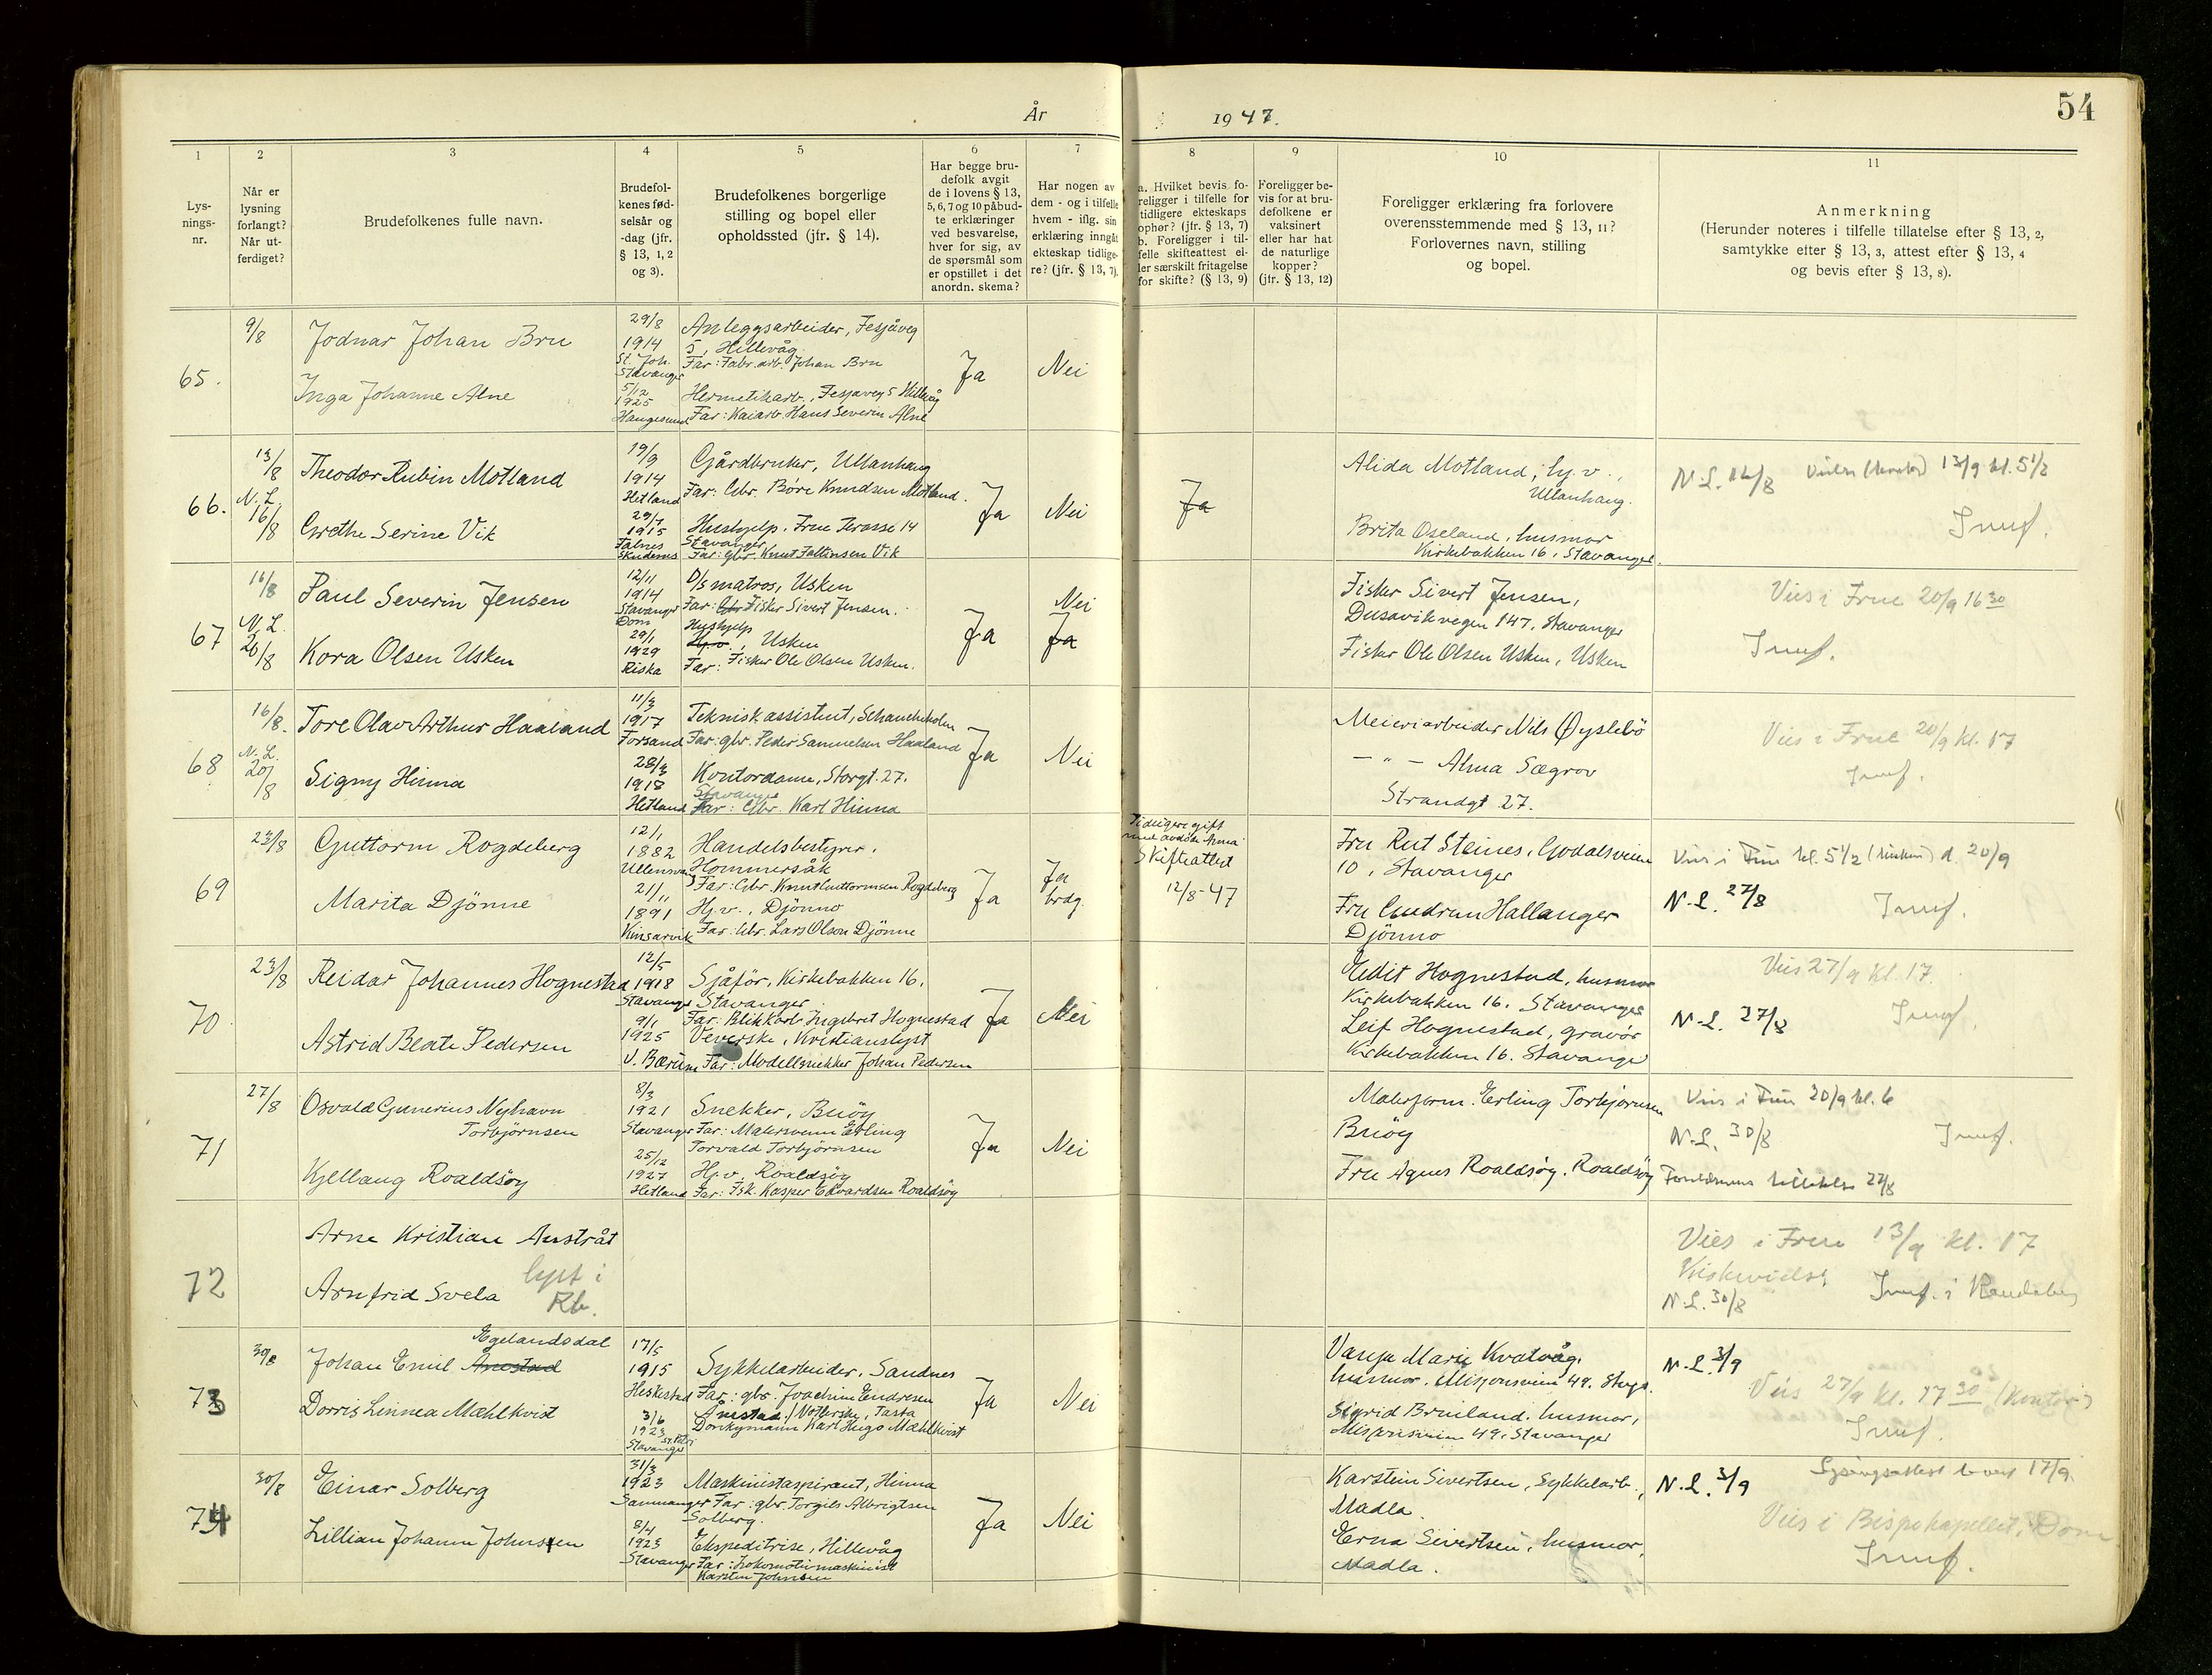 År 1947.
54
1 2 3 4 5 6 7 8 9 10 11
Lys-
nings-
nr.
Når er
lysning
forlangt?
Når ut-
ferdiget?
Brudefolkenes fulle navn.
Brudefol-
kenes fød-
selsår og
-dag (jfr.
§ 13, 1, 2
og 3).
Brudefolkenes borgerlige
stilling og bopel eller
opholdssted (jfr. § 14).
Har begge bru-
defolk avgit
de i lovens § 13,
5, 6, 7 og 10 påbud-
te erklæringer
ved besvarelse,
hver for sig, av
de spørsmål som
er opstillet i det
anordn. skema?
Har nogen av
dem - og i tilfelle
hvem - iflg. sin
erklæring inngåt
ekteskap tidlige-
re? (jfr. § 13, 7).
a. Hvilket bevis fo-
religger i tilfelle for
tidligere ekteskaps
ophør? (jfr. § 13, 7)
b. Foreligger i til-
felle skifteattest el-
ler særskilt fritagelse
for skifte? (§ 13, 9)
Foreligger be-
vis for at bru-
defolkene er
vaksinert
eller har hat
de naturlige
kopper?
(jfr. § 13, 12)
Foreligger erklæring fra forlovere
overensstemmende med § 13, 11?
Forlovernes navn, stilling
og bopel.
Anmerkning
(Herunder noteres i tilfelle tillatelse efter § 13, 2,
samtykke efter § 13, 3, attest efter § 13, 4
og bevis efter § 13, 8).
65.
9/8
Jodnar Johan Bru
Inga Johanne Alne
29/8
1914
St. Joh.
Stavanger
5/12
1925
Haugesund
Anleggsarbeider, Fesjåveg
5, Hillevåg
Far: Fabr.arb. Johan Bru
Hermetikarb., Fesjaveg 5 Hillevåg
Far: Kaiarb. Hans Severin Alne
Ja
Nei
66.
13/8
N. L.
16/8
Theodor Rubin Motland
Grethe Serine Vik
19/9
1914
Hetland
29/7
1915
Falnes
Skudenes
Gårdbruker, Ullanhaug
Far: Gbr. Böre Knudsen Motland.
Hushjelp. Frue Terasse 14
Stavanger
Far: gbr. Knut Faltinsen Vik
Ja
Nei
Ja
Alida Motland, hj.v.,
Ullanhaug.
Brita Oseland, husmor
Kirkebakken 16, Stavanger.
N.L. 16/8 13/9 kl. 5 1/2
Innf.
67
16/8
N. L.
20/8
Paul Severin Jensen
Kora Olsen Usken
12/11
1914
Stavanger
Dom
29/1
1929
Riska
D/s matros, Usken
Far: Gbr Fisker Sivert Jensen.
Hushjelp
Hj.v., Usken
Far: Fisker Ole Olsen Usken.
Ja
Nei
Ja
Fisker Sivert Jensen,
Dusavikvegen 147, Stavanger
Fisker Ole Olsen Usken, Usken
Vies i Frue 20/9 16 30
Innf.
68
16/8.
N. L.
20/8
Tore Olav Arthur Haaland
Signy Hinna
11/3
1917
Forsand
28/3
1918
Hetland
Teknisk assistent, Schancheholen
Far: gbr. Peder Samuelsen Haaland
Kontordame, Storgt. 27.
Stavanger
Far: Gbr. Karl Hinna
Ja
Nei
Meieriarbeider Nils Øyslebö
— " — Alma Sægrov
Strandgt 27.
Vies i Frue 20/9 kl. 17
Innf.
69
23/8
Guttorm Rogdeberg
Marita Djönne
12/1
1882
Ullensvang
21/11
1891
Kinsarvik
Handelsbestyrer.
Hommersåk
Far: Gbr. Knut Guttormsen Rogdeberg
Hj.v., Djönno
Far: Gbr. Lars Olson Djönne
Ja
Ja
brdg.
Tidligere gift
med avdöde Anna
Skifteattest
12/8-47
Fru Rut Steines, Godalsveien
10, Stavanger
Fru Gudrun Hallanger
Djönno
Vies i Frue kl. 5 1/2 d. 20/9
N.L. 27/8
Innf.
70
23/8
Reidar Johannes Hognestad
Astrid Beate Pedersen
12/5
1918
Stavanger
9/1
1925
V. Bærum
Sjåför, Kirkebakken 16.
Stavanger
Far: Blikkarb. Ingebret Hognestad
Veverske, Kristianslyst
Far: Modellsnekker Johan Pedersen
Ja
Nei
Edit Hognestad, husmor
Kirkebakken 16. Stavanger
Leif Hognestad, gravör
Kirkebakken 16. Stavanger
Vies 27/9 kl. 17.
N.L. 27/8
Innf.
71
27/8
Osvald Gunerius Nyhavn
Torbjörnsen
Kjellaug Roaldsöy
8/3
1921
Stavanger
25/12
1927
Hetland
Snekker, Buöy
Far: Malersvenn Erling
Torvald Torbjörnsen
Hj.v., Roaldsöy
Far: Fsk. Kasper Edvardsen Roaldsöy
Ja
Nei
Malerform. Erling Torbjörnsen
Buöy
Fru Agnes Roaldsöy. Roaldsöy
Vies i Frue 20/9 kl. 6
N.L. 30/8
Innf.
27/8
72
Arne Kristian Austråt
Arnfrid Svela
lyst i
Rb.
Vies i Frue 13/9 kl. 17
N.L. 30/8
Innf. i Randaberg
73
30/8
Egelandsdal
Johan Emil Anestad
Dorris Linnea Mæhlkvist
17/5
1915
Heskestad
3/6
1923
St. Petri
Stavanger
Sykkelarbeider, Sandnes
Far: gbr. Joachim Endresen
Ånestad / Notlerske, Tasta
Donkymann Karl Hugo Mæhlkvist
Ja
Nei
Vanja Marie Kvatvåg,
husmor, Misjonsveien 49. Stvgr.
Sigrid Bruiland. husmor,
Misjonsveien 49, Stavanger
N.L. 3/9
Vies 27/9 kl. 17 30 (kontor)
Innf.
74
30/8
Einar Solberg
Lillian Johanne Johnsen
31/3
1923
Samnanger
8/4
1923
Stavanger
Maskinistaspirant, Hinna
Far: gbr. Torgils Albrigtsen
Solberg.
Ekspeditrise, Hillevåg
Far: Lokomotivmaskinist
Karsten Johnsen
Ja
Nei
Karstein Sivertsen, Sykkelarb.,
Madla.
Erna Sivertsen, husmor,
Madla.
N.L. 3/9
Lysingsattest 17/9
Vies i Bispekapellet, Dom
Innf.